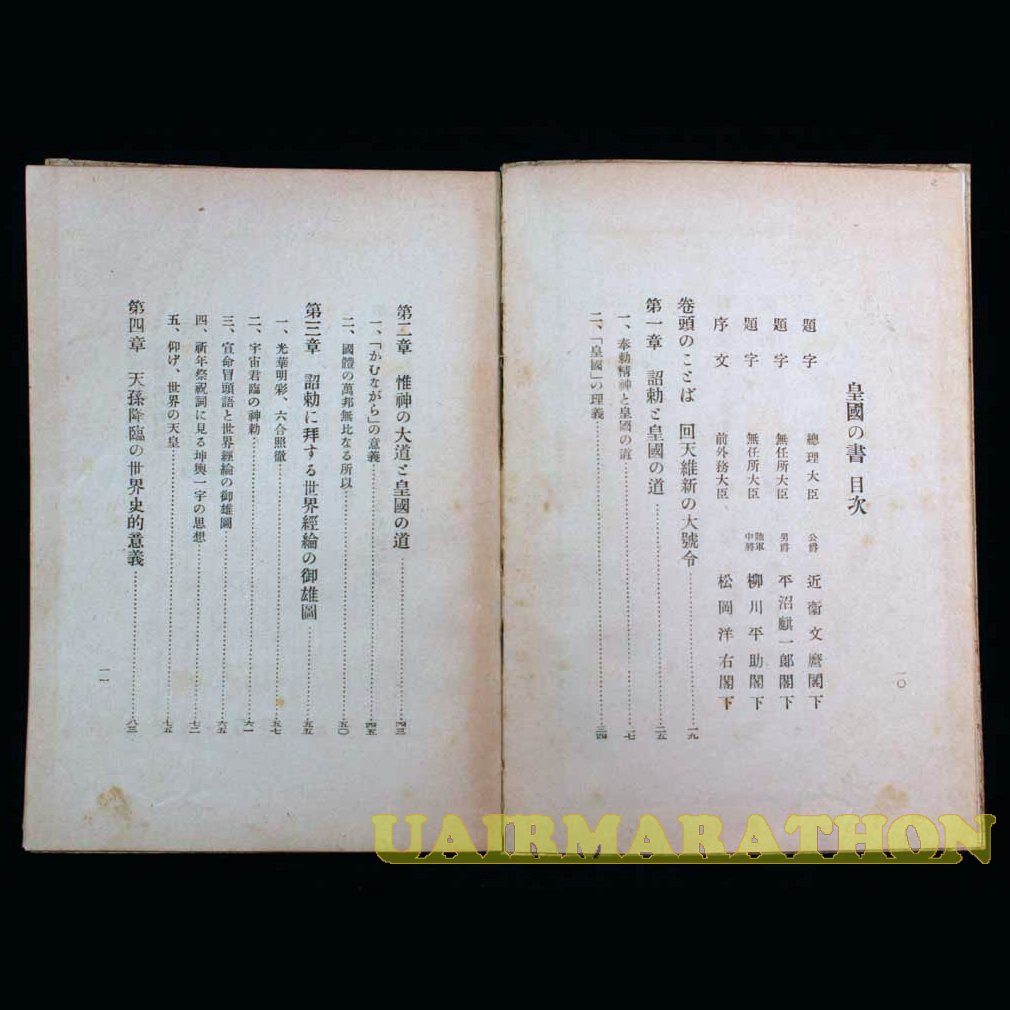 皇國の書 目次
題字 總理大臣 公爵 近衞文麿閣下
題字 無任所大臣 男爵 平沼麒一郎閣下
題字 無任所大臣 陸軍中將 柳川平助閣下
序文 前外務大臣 松岡洋右閣下
卷頭のことば 回天維新の大號令……一九
第一章 詔勅と皇國の道……二五
一、奉勅精神と皇國の道……二七
二、「皇國」の理義……三四
一〇
第二章 惟神の大道と皇國の道……四三
一、「かむながら」の意義……四五
二、國體の萬邦無比なる所以……五〇
第三章 詔勅に拜する世界經綸の御雄圖……五五
一、光華明彩、六合照徹……五七
二、宇宙君臨の神勅……六一
三、宣命冒頭語と世界經綸の御雄圖……六五
四、祈年祭祝詞に見る坤輿一宇の思想……七二
五、仰げ、世界の天皇……七五
第四章 天孫降臨の世界史的意義……八三
一一
UAIRMARATHON